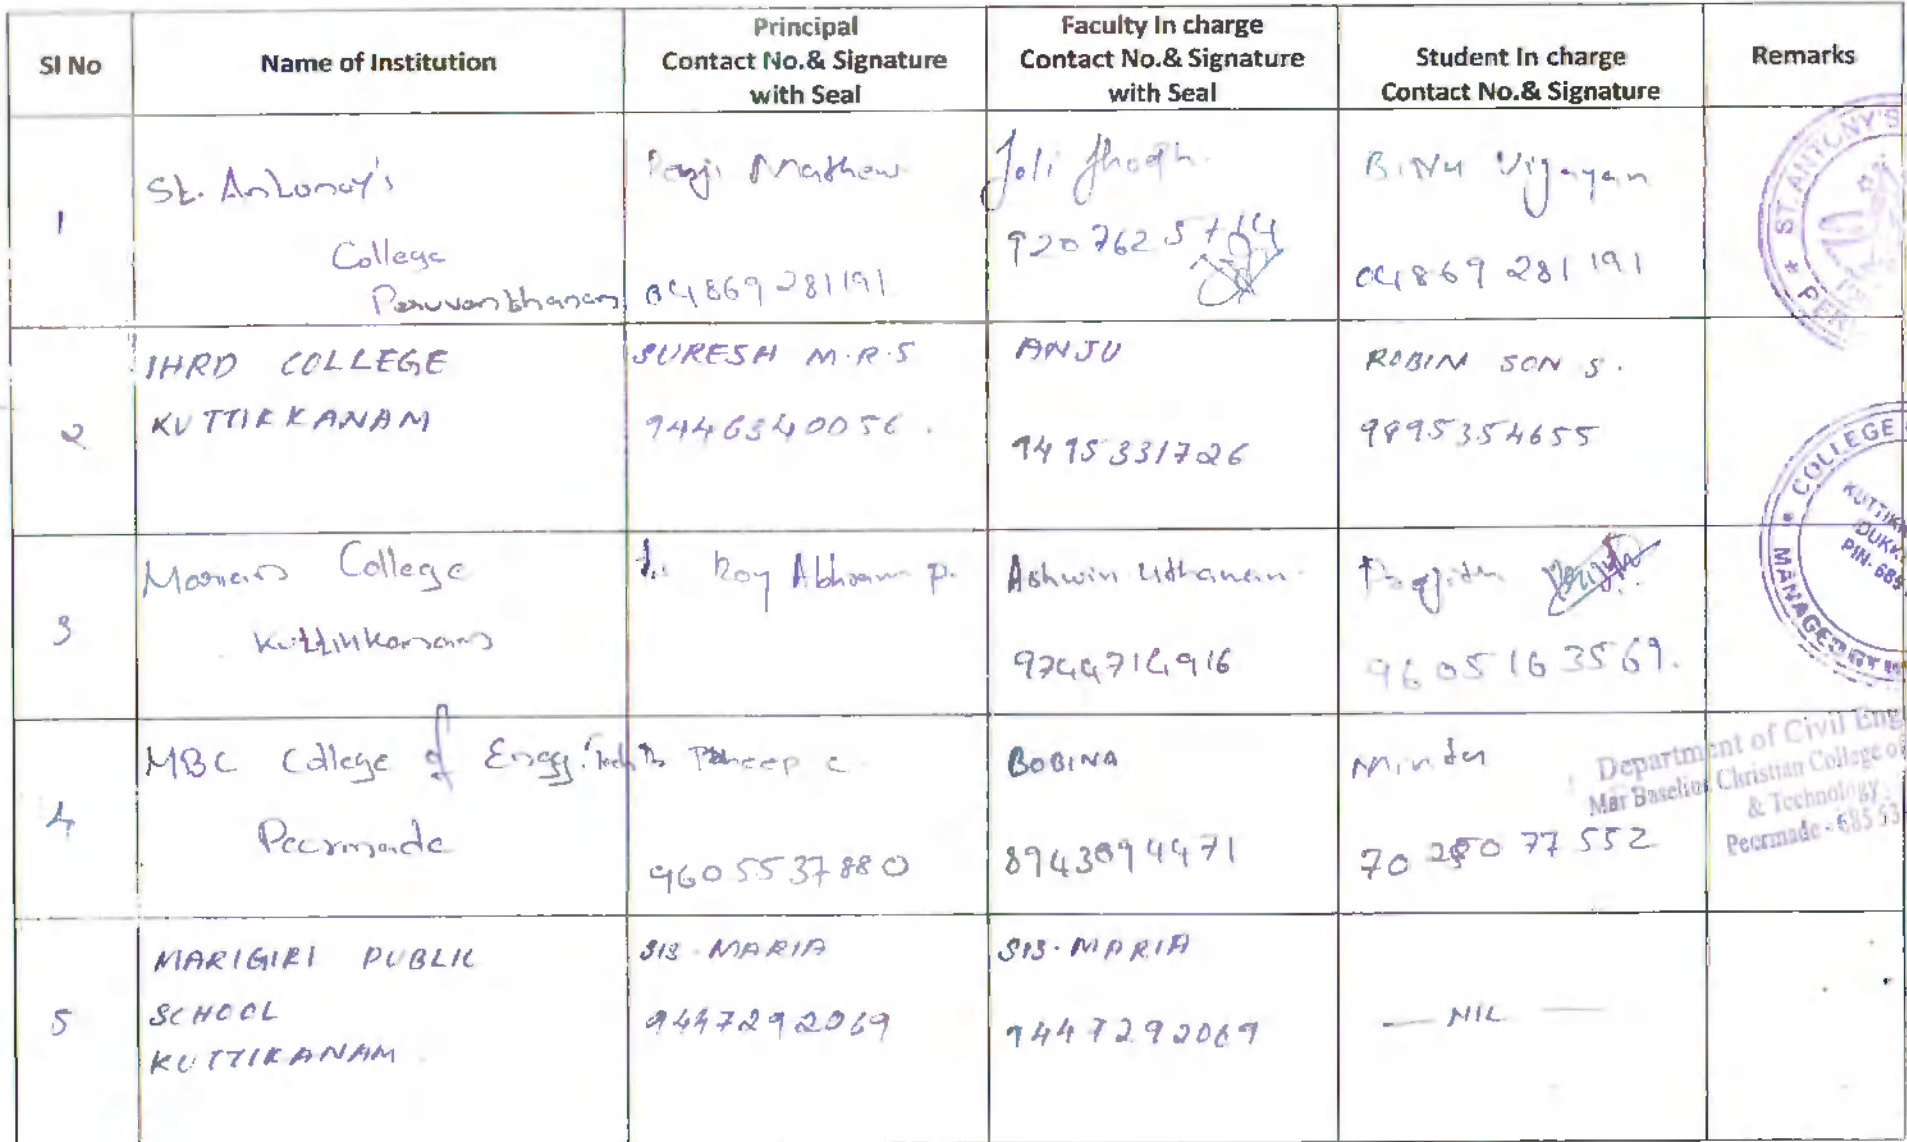 Sl No
Name of Institution
Principal
Contact No.& Signature
with Seal
Faculty In charge
Contact No.& Signature
with Seal
Student In charge
Contact No.& Signature
Remarks
1
St. Antony's
College
Peruvanthanam
Mathew
04869 281191
Joli
920762
Binu Vijayan
04869 281191
ST. ANTONY'S
2
IHRD COLLEGE
KUTTIKKANAM
SURESH M.R.S
ANJU
9495331726
ROBIN SON S.
9895354655
COLLEGE
MANAGED BY
PIN- 685
3
Marian College
Kuttikkanam
Roy Abraham P.
Ashwin
9744714916
9605163569.
4
MBC College of Engg. Tech
Peermade
9605537880
BOBINA
8943094471
70 77552
Department of Civil Eng
Mar Baselios Christian College of
& Technology
Peermade - 685 53
5
MARIGIRI PUBLIC
SCHOOL
KUTTIKANAM
SIS. MARIA
9447292069
SIS. MARIA
9447292069
— NIL —